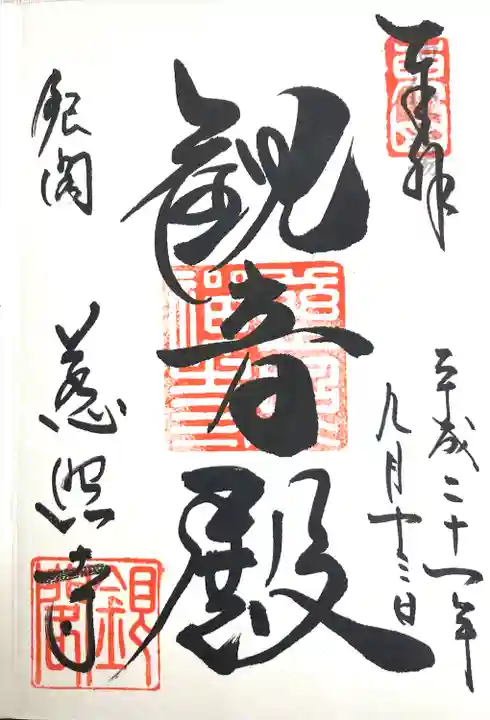 奉拝
平成二十一年
九月十三日
観音殿
銀閣
慈照寺
銀閣